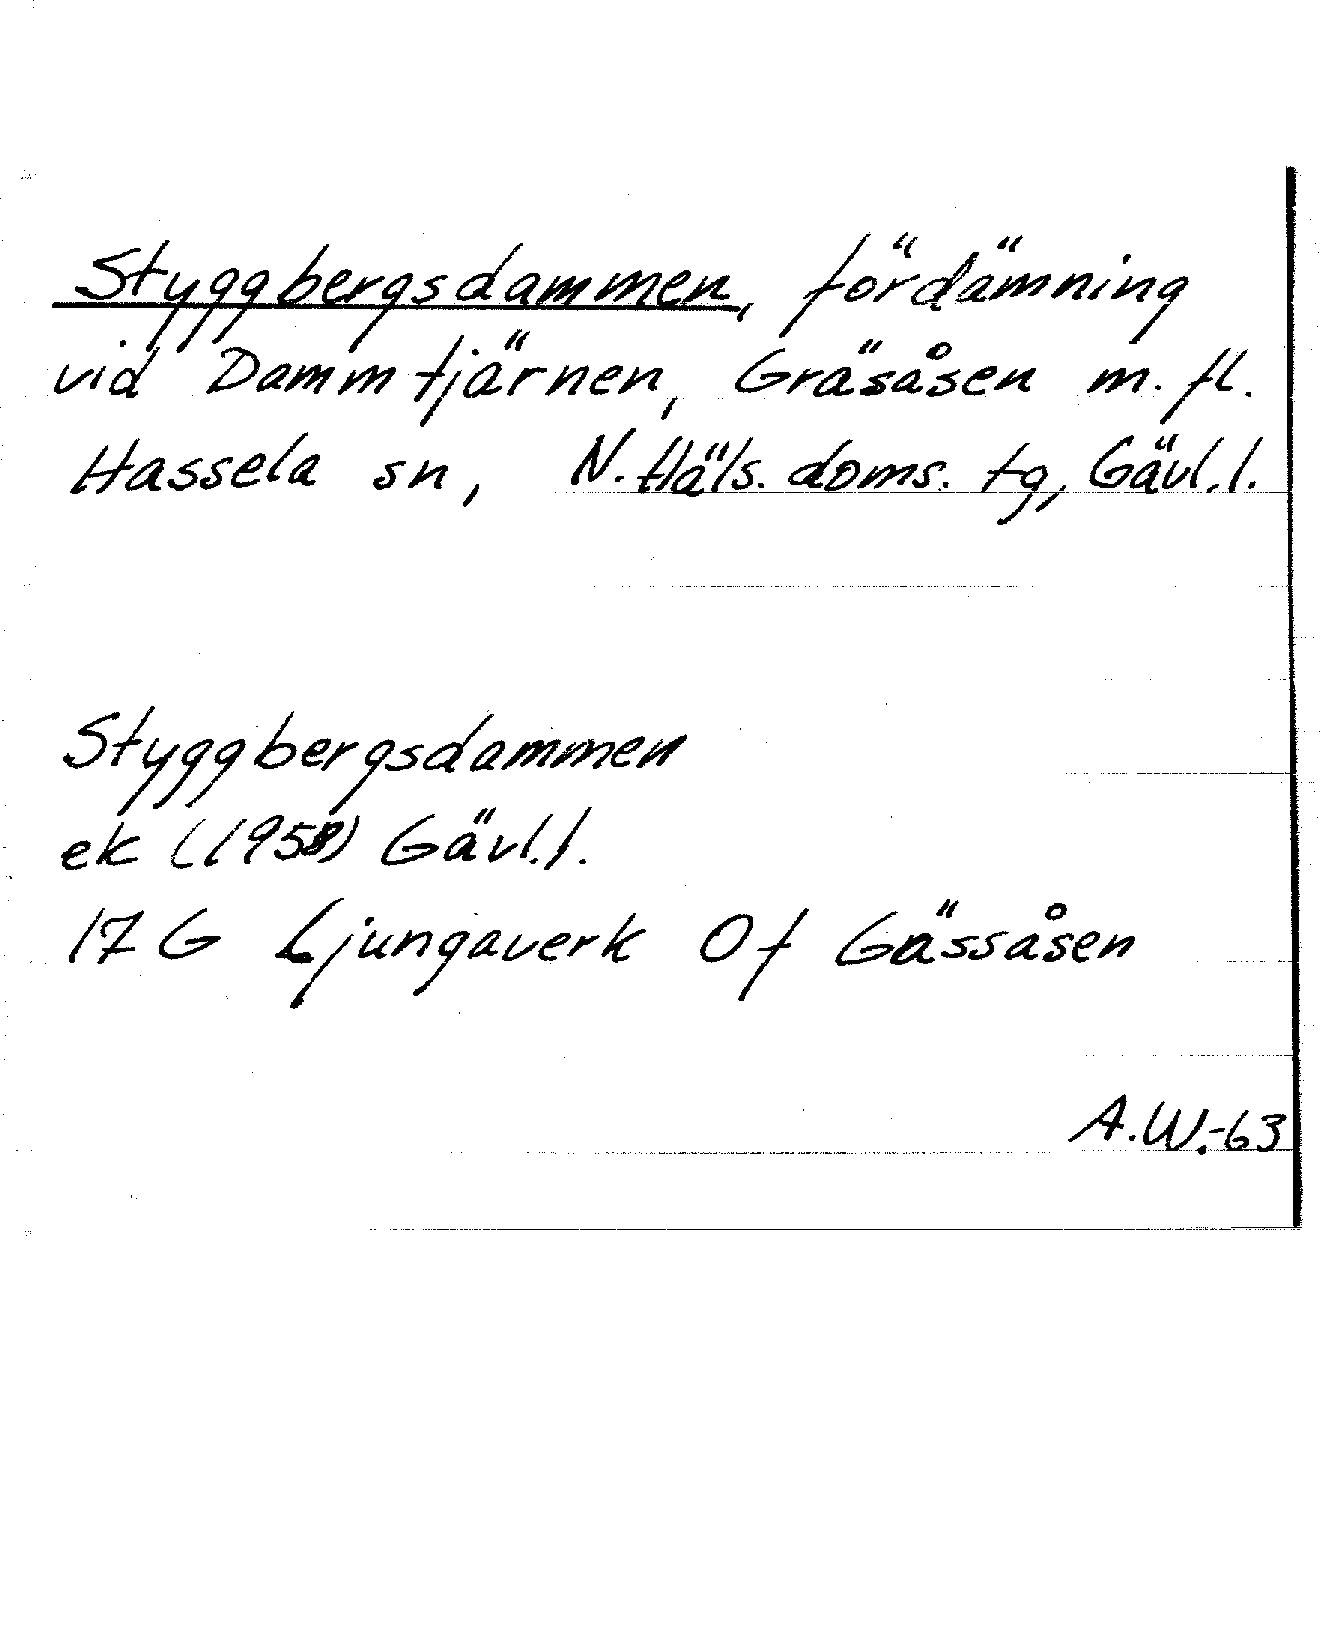 Styggbergsdammen, fördämning
vid Dammtjärnen, Gräsåsen m. fl.
Hassela sn, N. Häls. doms. tg, Gävl. l.
Styggbergsdammen
ek (1958) Gävl. l.
17 G Ljungaverk Of Gässåsen
A.W.-63